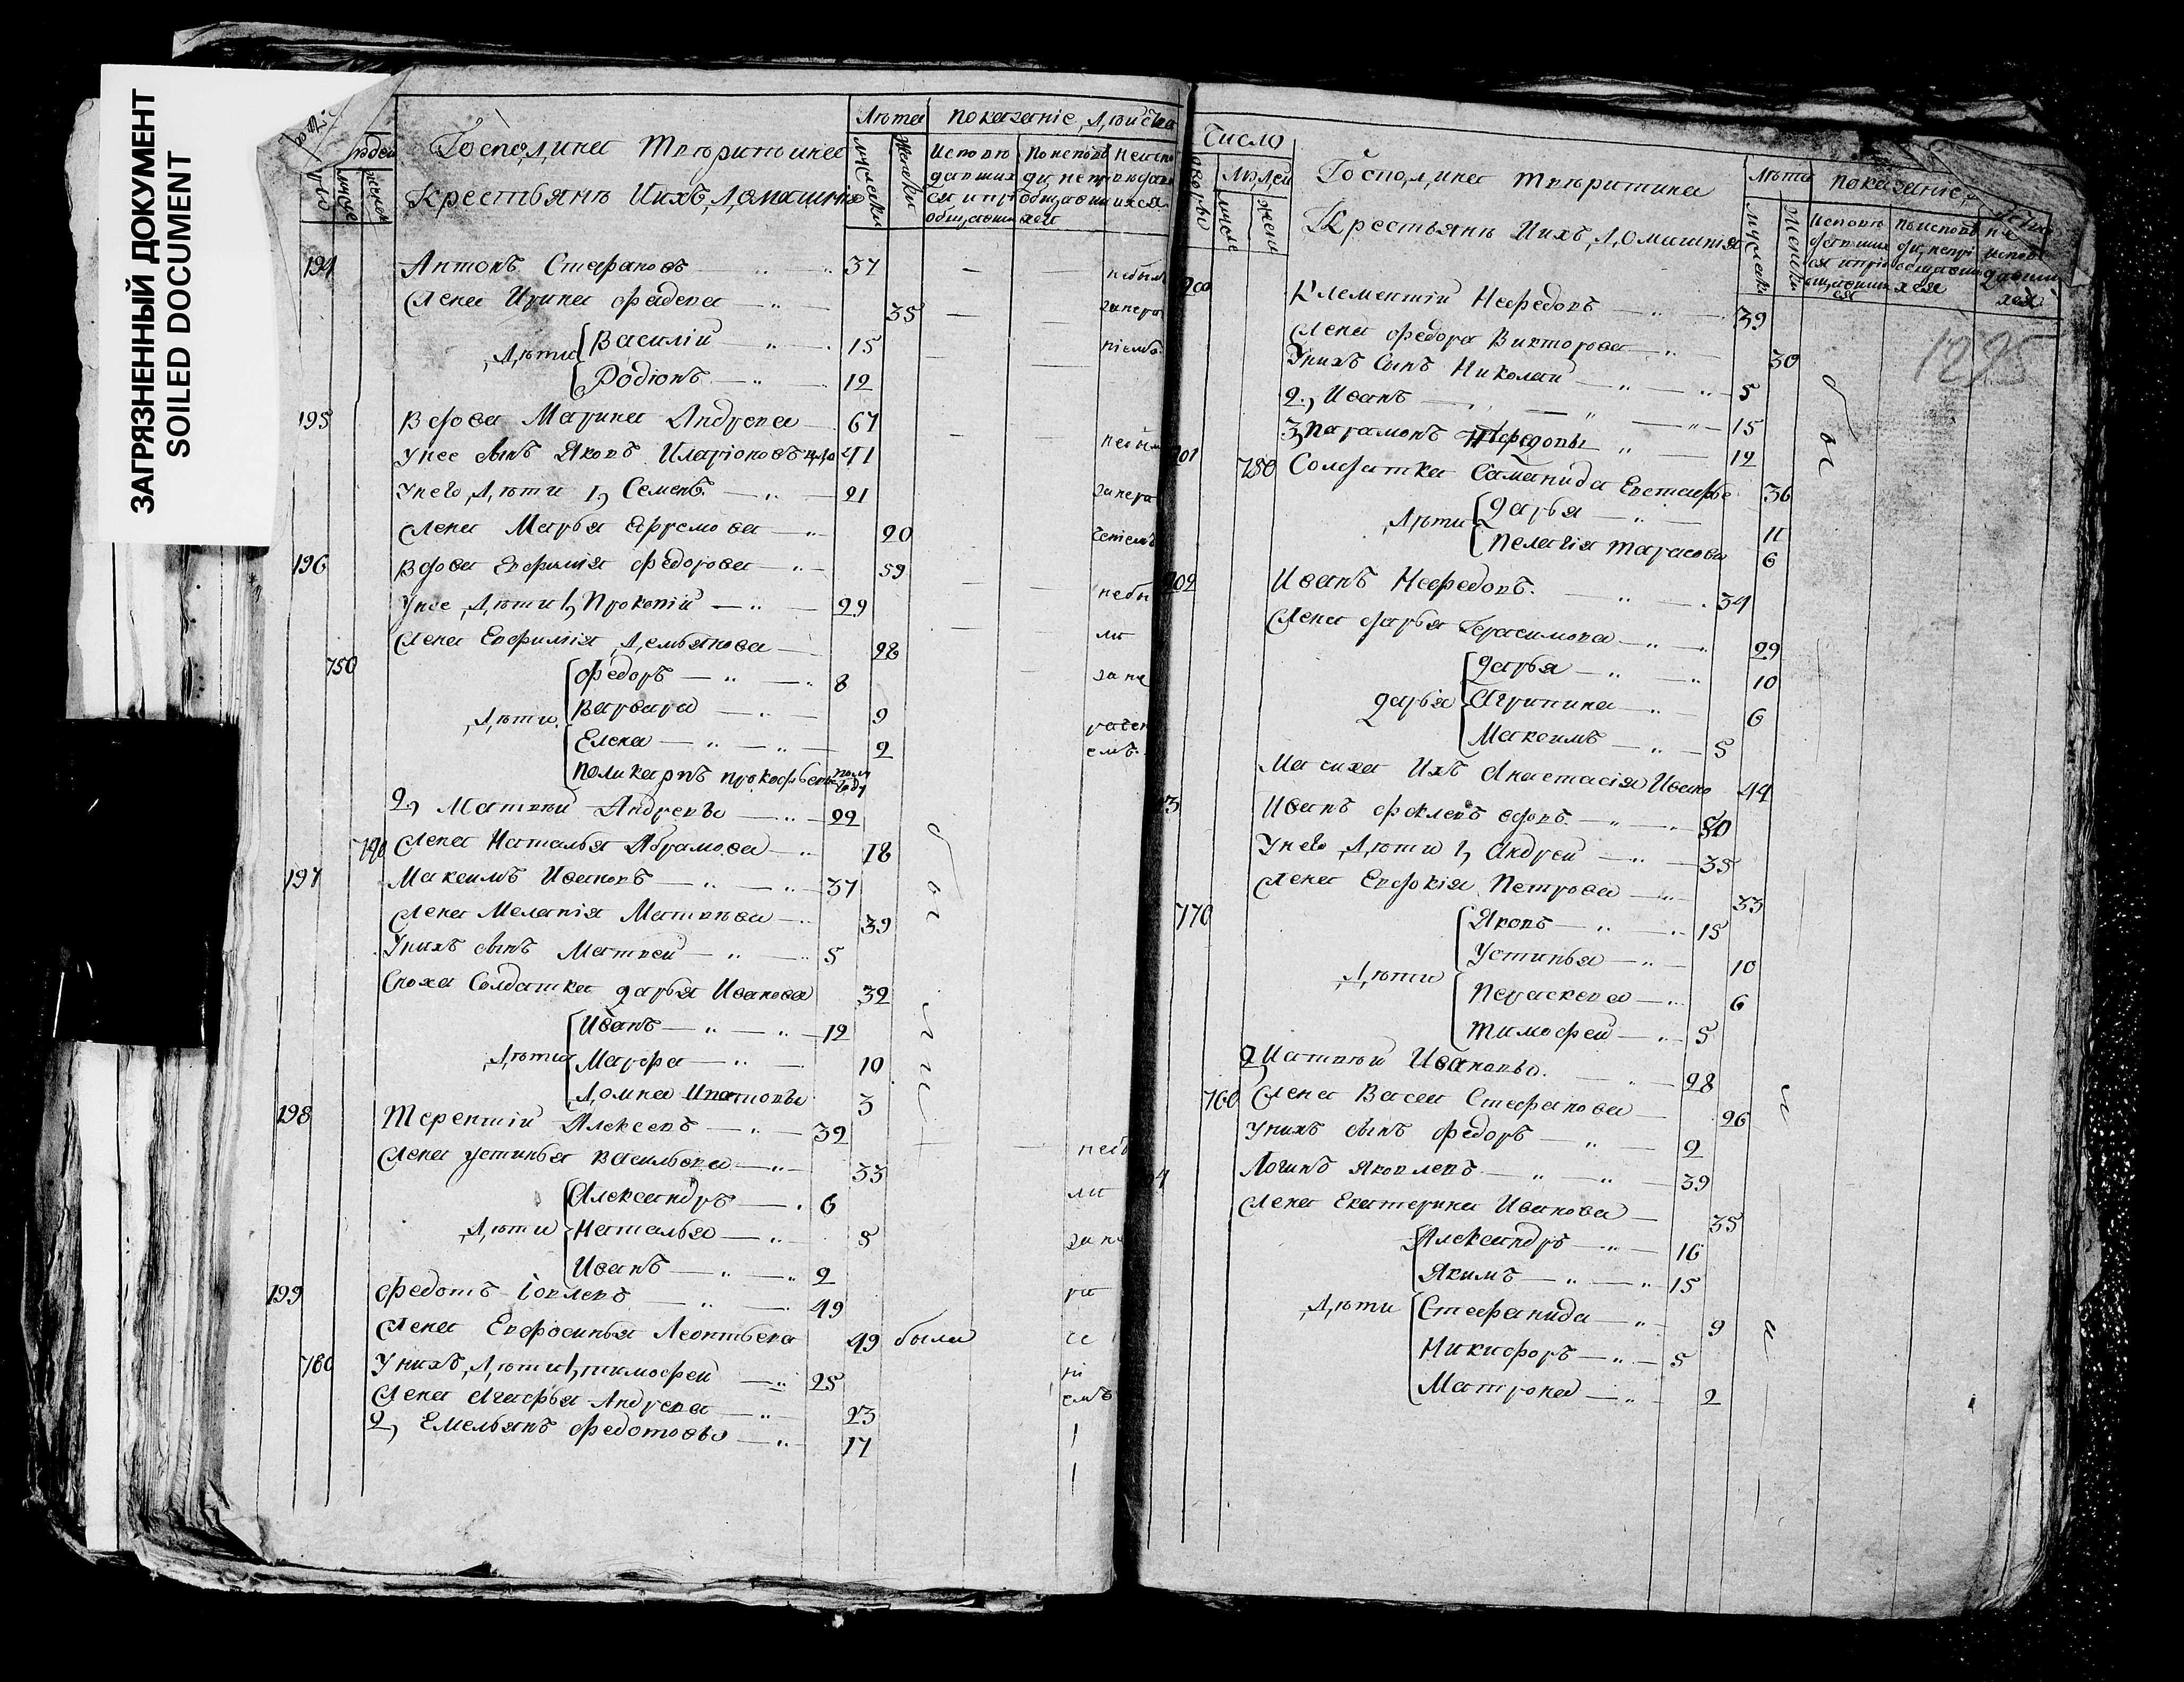 ЗАГРЯЗНЕННЫЙ ДОКУМЕНТ
SOILED DOCUMENT
Крестьянъ Ииxъ Домашнія
Лѣта Показаніе Дѣйства
мужеска женска
194 Антонъ Стефановъ 37
Жена Ирина Фадеева 35
Дѣти Василій 15
Родіонъ 12
195 Вдова Марина Андреева 67
Унее сынъ Яковъ Иларіоновъ 41
Унего Дѣти 1, Семенъ 21
Жена Марья 20
196 Вдова Евфимія Федорова 59
Унее Дѣти 1, Прокопій 29
Жена Евфимія Демьянова 28
750 Федоръ 8
Дѣти Варвара 9
Елена 2
Поликарпъ Прокофьевы полугоду
2, Матвѣй Андреевъ 22
740 Жена Наталья Абрамова 18
197 Максимъ Ивановъ 37
Жена Меланія Матвѣева 39
Унихъ сынъ Матвей 5
Сноха Солдатка Дарья Иванова 32
Иванъ 12
Дѣти Марфа 10
Домна 3
198 Терентій Алексеевъ 39
Жена Устинья Васильева 33
Александръ 6
Дѣти Наталья 5
Иванъ 2
199 Федотъ Іовлевъ 49
Жена Евфросинья Леонтьева 49 были
760 Унихъ Дѣти 1, Тимофей 25
Жена Агафья Андреева 23
2, Емельянъ Федотовы 17
Число
Крестьянъ Иихъ Домашнія
Лѣта Показаніе
1225
200 Клементій Нефедовъ 39
Жена Федора Викторова 30
Унихъ Сынъ Николай 5
2, Иванъ 15
3, Парамонъ Нефедовы 12
201 750 Солдатка Саманида 36
Дѣти Дарья 11
Пелагія Тарасова 6
202 Иванъ Нефедовъ 34
Жена Дарья Герасимова 29
Дарья 10
Дарья Агрипина 6
Максимъ 5
Мачиха Ихъ Анастасія Ивано 44
Иванъ вдовъ 50
Унего Дѣти 1, Андрей 35
Жена Евдокія Петрова 33
770 Яковъ 15
Устинья 10
Дѣти Пераскева 6
Тимофей 5
2, Матвѣй Ивановы 28
760 Жена Васса Стефанова 26
Унихъ сынъ Федоръ 2
Логинъ Яковлевъ 39
Жена Екатерина Иванова 35
Александръ 16
Якимъ 15
Дѣти Стефанида 9
Никифоръ 5
Матрона 2